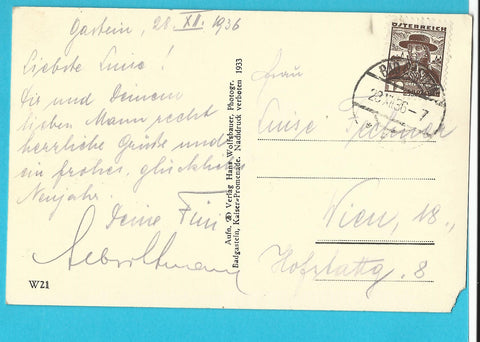 Gastein, 28. XII. 1936
Liebste Luise!
Dir und Deinem
lieben Mann recht
herzliche Grüße und
ein frohes, glückliches
Neujahr.
Deine
W21
Aufn. Verlag Hans Wolfsbauer, Photogr.
Badgastein, Kaiser-Promenade. Nachdruck verboten 1933
ÖSTERREICH
28.XII.36-7
Frau
Luise
Wien, 18.,
Hofstattg. 8